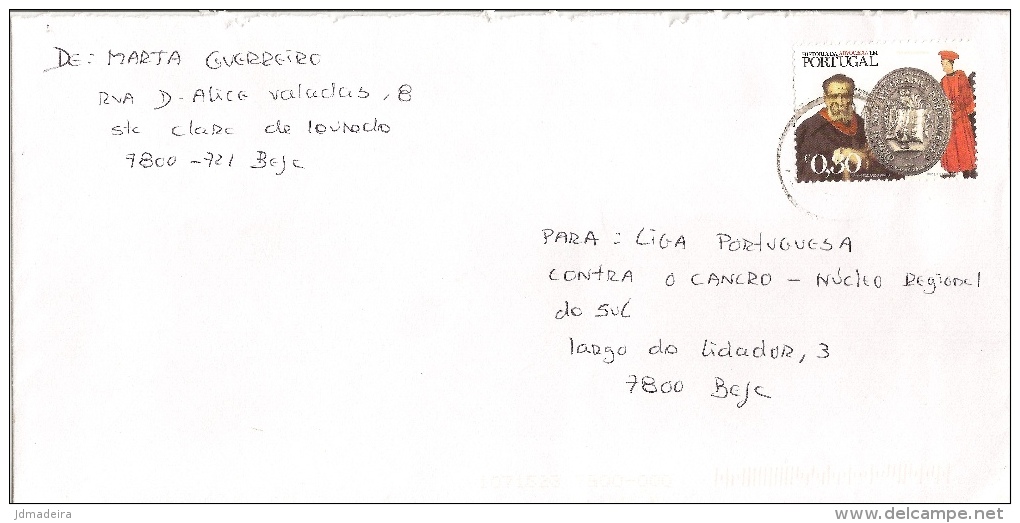 DE: MARTA GUERREIRO
RUA D. Alice Valadas, 8
Sta Clara de Louredo
7800-721 Beja
HISTÓRIA DA ADVOCACIA EM
PORTUGAL
€0,30
PARA: LIGA PORTUGUESA
CONTRA O CANCRO - NÚCLEO Regional
do SUL
largo do Lidador, 3
7800 Beja
jdmadeira
delcampe.net